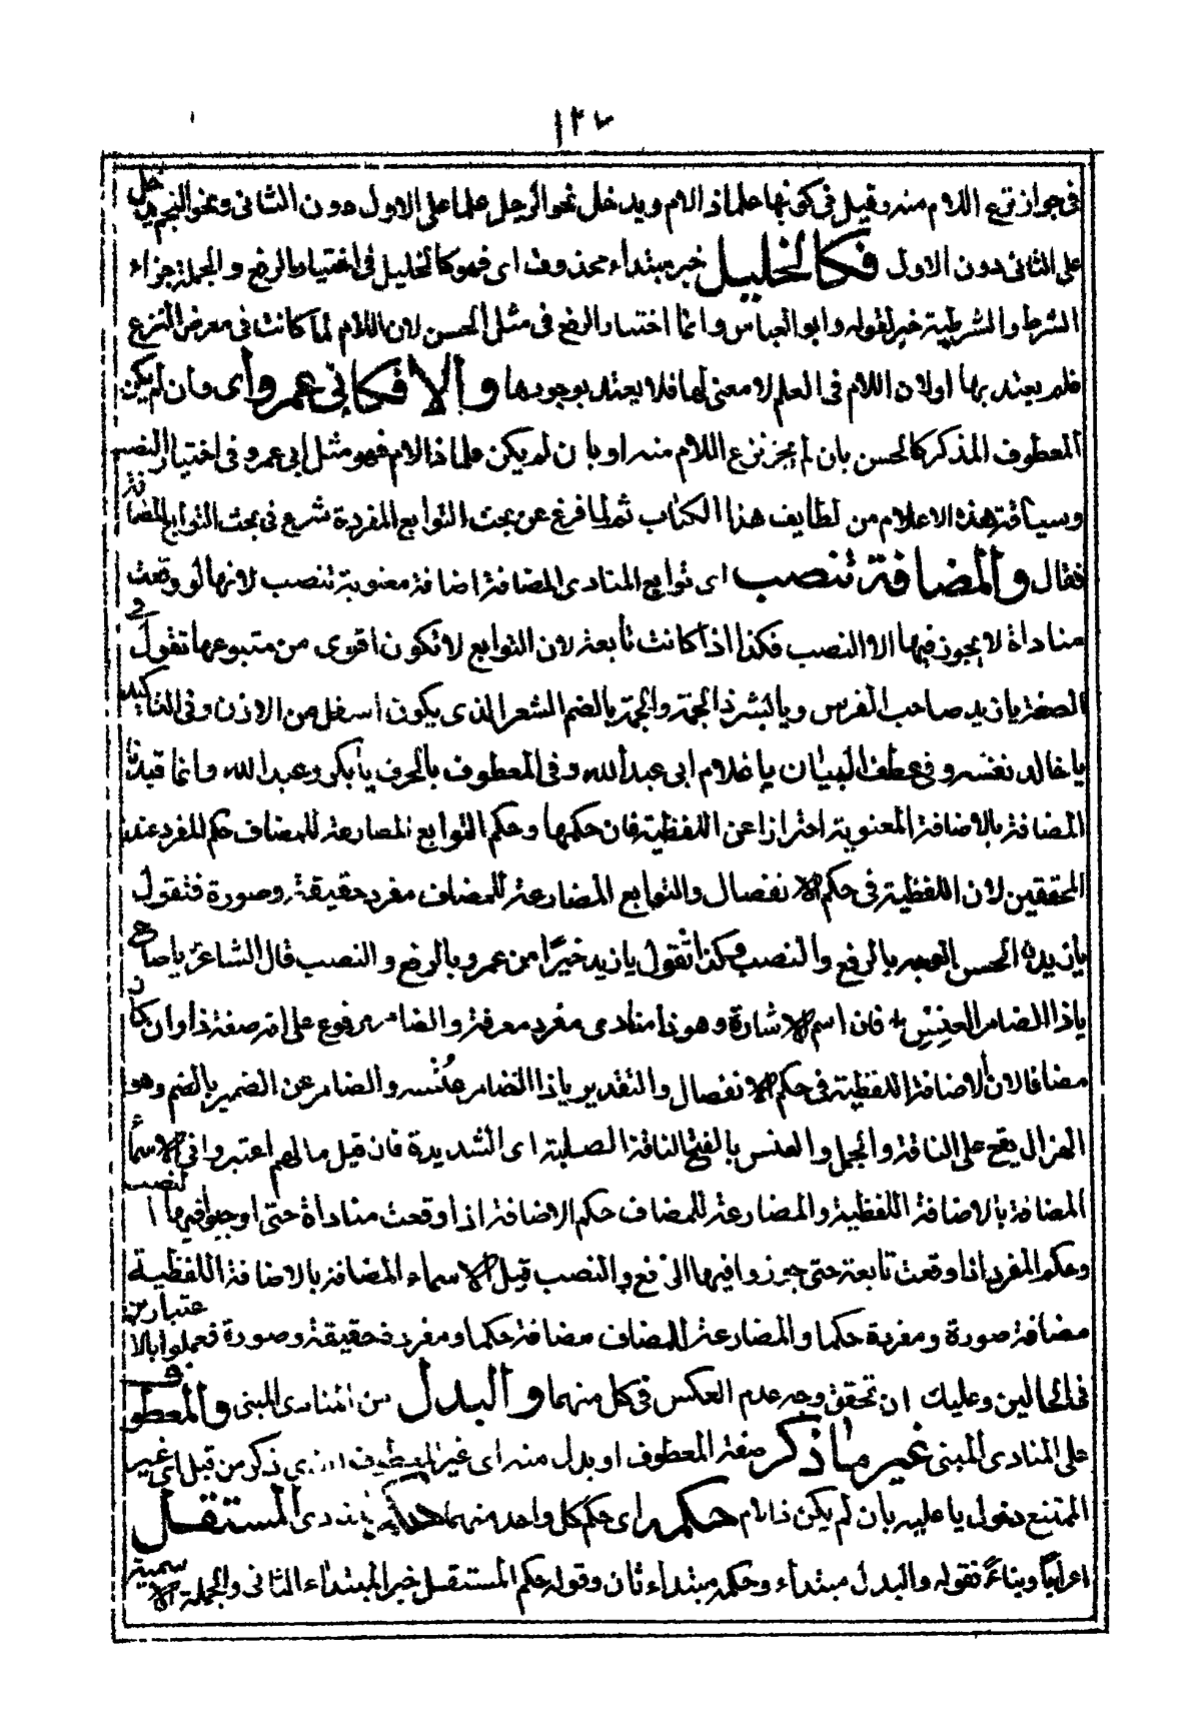 ١٢٧
فى جواز نزع اللام منه وقيل فى كونها علما ذا لام ويدخل نحو الرجل علما على الاول دون الثانى ونحو النجم يدخل
على الثانى دون الاول فكالخليل خبر مبتداء محذوف اى فهو كالخليل فى اختيار الرفع والجملة جزاء
الشرط والشرطية خبر لقوله وابو العباس وانما اختار الرفع فى مثل الحسن لان اللام لما كانت فى معرض النزع
فلم يعتد بها او لان اللام فى العلم لا معنى لها فلا يعتد بوجودها والا فكابى عمرو اى وان لم يكن
المعطوف المذكر كالحسن بان لم يجز نزع اللام منه او بان لم يكن علما ذا لام فهو مثل ابى عمرو فى اختيار النصب
وسياقة هذه الاعلام من لطايف هذا الكتاب ثم لما فرغ عن بحث التوابع المفردة شرع فى بحث التوابع المضافة
فقال والمضافة تنصب اى توابع المنادى المضافة اضافة معنوية تنصب لانها لو وقعت
مناداة لا يجوز فيها الا النصب فكذا اذا كانت تابعة لان التوابع لا تكون اقوى من متبوعها تقول فى
الصفة يا زيد صاحب الفرس ويا بشر ذا الجمة والجمة بالضم الشعر الذى يكون اسفل من الاذن وفى التاكيد
يا خالد نفسه وفى عطف البيان يا غلام ابى عبد الله وفى المعطوف بالحرف يا بكر وعبد الله وانما قيدنا
المضافة بالاضافة المعنوية احترازا عن اللفظية فان حكمها وحكم التوابع المضارعة للمضاف حكم المفرد عند
المحققين لان اللفظية فى حكم الانفصال والتوابع المضارعة للمضاف مفرد حقيقة وصورة فتقول
يا زيد الحسن الوجه بالرفع والنصب وكذا تقول يا زيد خيرا من عمرو بالرفع والنصب قال الشاعر يا صاح
يا ذا الضامر العنس فان اسم الاشارة وهو ذا منادى مفرد معرفة والضامر مرفوع على انه صفة ذا وان كان
مضافا لان الاضافة اللفظية فى حكم الانفصال والتقدير يا ذا الضامر عنسه والضامر عن الضمير بالضم وهو
الهزال يقع على الناقة والجمل والعنس بالفتح الناقة الصلبة اى الشديدة فان قيل ما لهم اعتبروا فى الاسماء
المضافة بالاضافة اللفظية والمضارعة للمضاف حكم الاضافة اذا وقعت مناداة حتى اوجبوا فيها النصب
وحكم المفرد اذا وقعت تابعة حتى جوزوا فيها الرفع والنصب قيل الاسماء المضافة بالاضافة اللفظية
مضافة صورة ومفردة حكما والمضارعة للمضاف مضافة حكما ومفردة حقيقة وصورة فعملوا بالاعتبارين
فى الحالين وعليك ان تحقق وجه عدم العكس فى كل منهما والبدل من المنادى المبنى والمعطوف
على المنادى المبنى غير ما ذكر صفة المعطوف او بدل منه اى غير المعطوف الذى ذكر من قبل اى غير
الممتنع دخول يا عليه بان لم يكن ذا لام حكمه اى حكم كل واحد منهما حكم المنادى المستقل
اعرابا وبناء فقوله والبدل مبتداء وحكمه مبتداء ثان وقوله حكم المستقل خبر المبتداء الثانى والجملة الاسمية